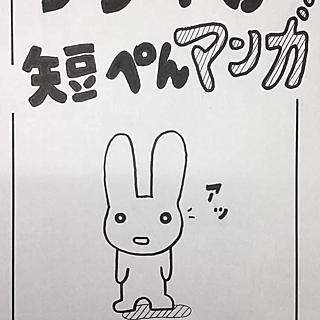 短ぺんマンガ
アッ